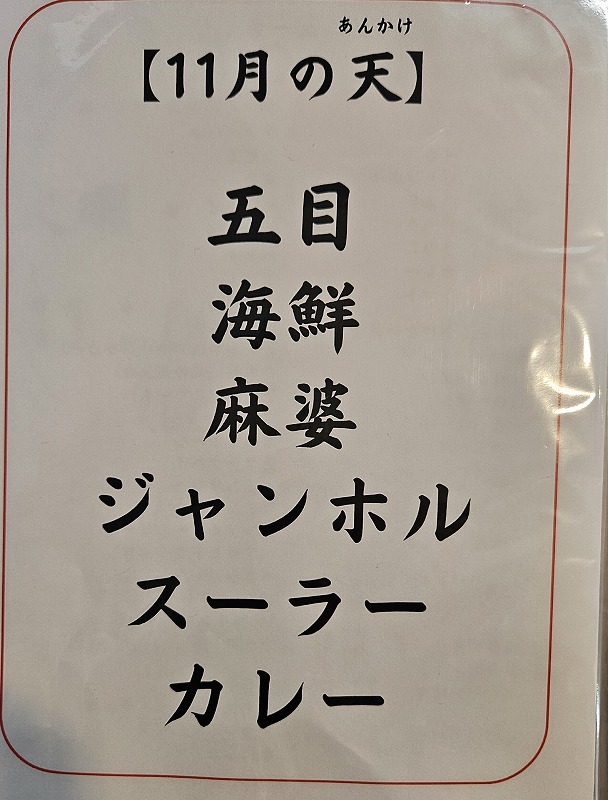 あんかけ
【11月の天】
五目
海鮮
麻婆
ジャンホル
スーラー
カレー